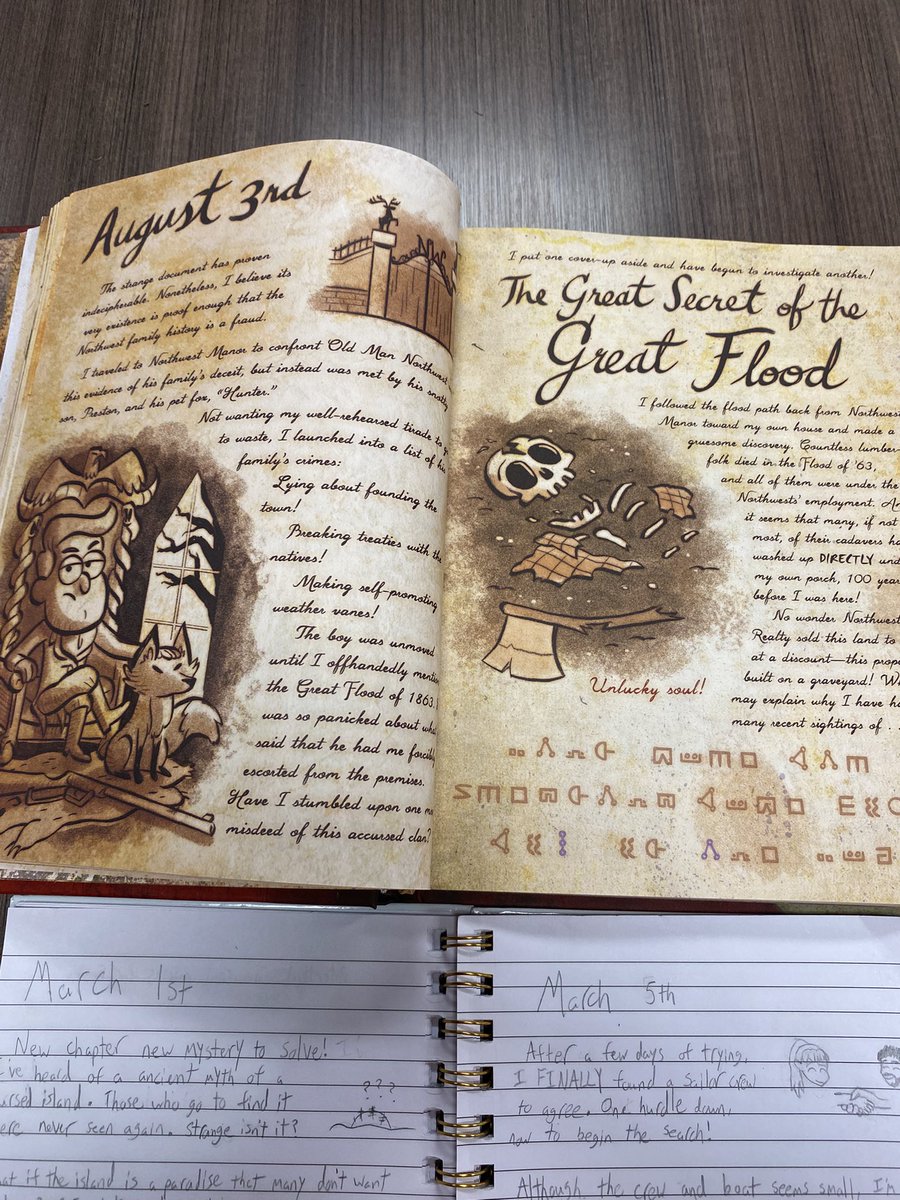 August 3rd
The strange document has proven
indecipherable. Nonetheless, I believe its
very existence is proof enough that the
Northwest family history is a fraud.
I traveled to Northwest Manor to confront Old Man Northwest
this evidence of his family's deceit, but instead was met by his snotty
son, Preston, and his pet fox, "Hunter."
Not wanting my well-rehearsed tirade to
to waste, I launched into a list of his
family's crimes:
Lying about founding the
town!
Breaking treaties with the
natives!
Making self-promoting
weather vanes!
The boy was unmoved
until I offhandedly
the Great Flood of 1863.
was so panicked about
said that he had me forcibly
escorted from the premises.
Have I stumbled upon one
misdeed of this accursed clan?
I put one cover-up aside and have begun to investigate another!
The Great Secret of the
Great Flood
I followed the flood path back from Northwest
Manor toward my own house and made a
gruesome discovery. Countless lumber-
folk died in the Flood of '63,
and all of them were under the
Northwests' employment. An
it seems that many, if not
most, of their cadavers ha
washed up DIRECTLY und
my own porch, 100 year
before I was here!
No wonder Northwest
Realty sold this land to
at a discount—this prope
built on a graveyard! W
may explain why I have ha
many recent sightings of . .
Unlucky soul!
March 1st
New chapter new mystery to solve!
I've heard of a ancient myth of a
cursed island. Those who go to find it
were never seen again. Strange isn't it?
? ? ?
what if the island is a paradise that many don't want
March 5th
After a few days of trying,
I FINALLY found a sailor crew
to agree. One hurdle down,
now to begin the search!
Although the crew and boat seems small, I'm